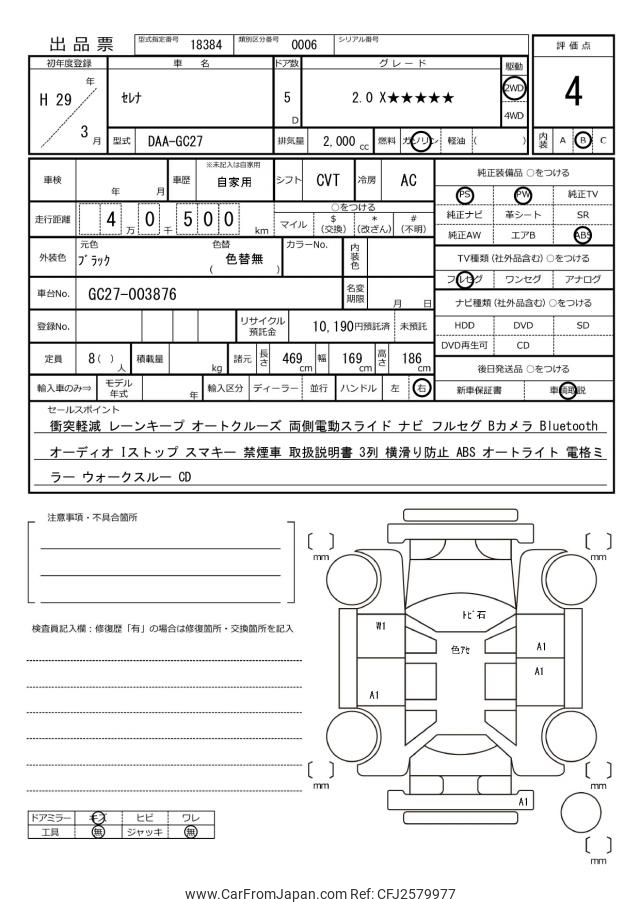 出品票 型式指定番号 18384 類別区分番号 0006 シリアル番号
初年度登録 車名 ドア数 グレード 駆動 評価点
H 29 年 3 月 セレナ 5 D 2.0 X★★★★★ 2WD 4WD 4
型式 DAA-GC27 排気量 2,000 cc 燃料 ガソリン 軽油 ( ) 内装 A B C
車検 年 月 車歴 ※未記入は自家用 自家用 シフト CVT 冷房 AC
純正装備品 ○をつける
PS PW 純正TV
純正ナビ 革シート SR
純正AW エアB ABS
走行距離 4 万 0 千 5 0 0 km
○をつける
マイル $ (交換) * (改ざん) # (不明)
外装色 元色 ブラック 色替 ( 色替無 ) カラーNo. 内装色
TV種類 (社外品含む) ○をつける
フルセグ ワンセグ アナログ
車台No. GC27-003876 名変期限 月 日
ナビ種類 (社外品含む) ○をつける
HDD DVD SD
DVD再生可 CD
登録No. リサイクル預託金 10,190円預託済 未預託
定員 8 ( ) 人 積載量 kg 諸元 長さ 469 cm 幅 169 cm 高さ 186 cm
後日発送品 ○をつける
新車保証書 車輌取説
輸入車のみ⇒ モデル年式 年 輸入区分 ディーラー 並行 ハンドル 左 右
セールスポイント
衝突軽減 レーンキープ オートクルーズ 両側電動スライド ナビ フルセグ Bカメラ Bluetooth
オーディオ Iストップ スマキー 禁煙車 取扱説明書 3列 横滑り防止 ABS オートライト 電格ミ
ラー ウォークスルー CD
注意事項・不具合箇所
検査員記入欄：修復歴「有」の場合は修復箇所・交換箇所を記入
mm
mm
トビ石
W1
色アセ
A1
A1
A1
mm
mm
A1
mm
ドアミラー キズ ヒビ ワレ
工具 無 ジャッキ 無
www.CarFromJapan.com Ref: CFJ2579977